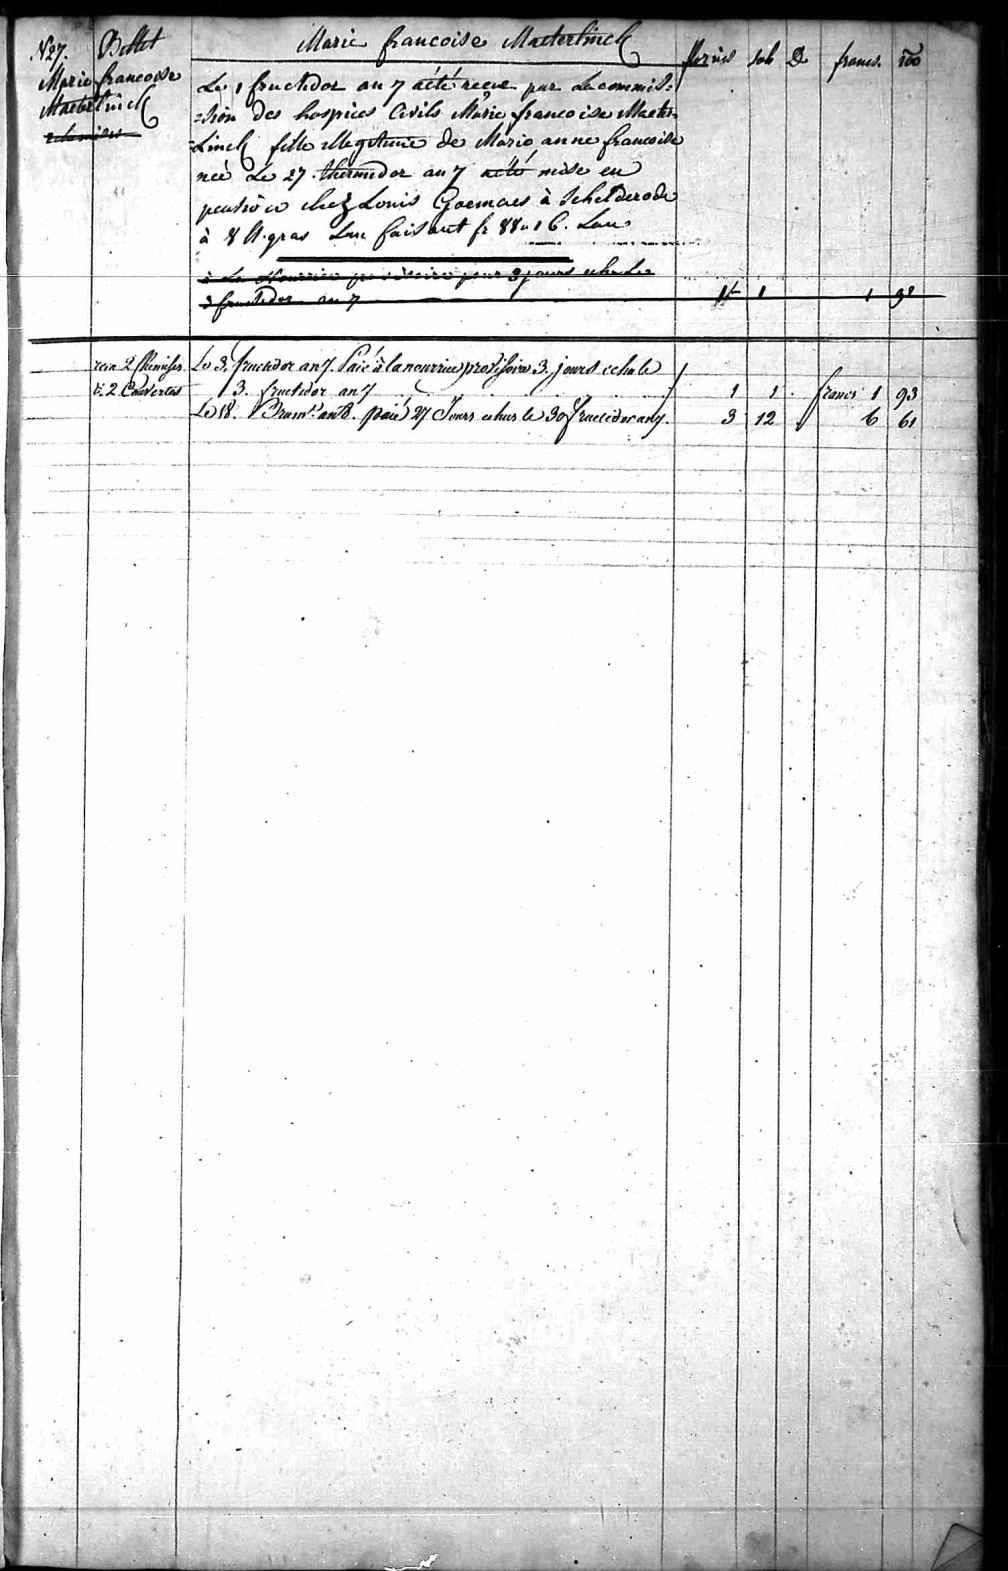 N 27. Billet
Marie francoise
Maeterlinck
Marie francoise Maeterlinck
florins sols D francs. 100
Le 1 fructidor an 7 a été recue par la commis=
=sion des hospices Civils Marie francoise Maeter-
=Linck fille illegitime de Marie anne francoise
née Le 27 thermidor an 7 a été mise en
pension chez Louis Goemaes à Schelderode
à 8 lt. gros L'an faisant fr 88 " 16. L'an
à La Nourrice provisoire pour 3 jours echu Le
3 fructidor an 7 1 1 1 98
2 Chemises Le 3. fructidor an 7. Paié à la nourrice provisoire 3. jours echu le
2 Couvertes 3. fructidor an 7 1 1 francs 1 93
Le 18. Brum.e an 8. paié 27 Jours echus le 30 fructidor an 7. 3 12 6 61